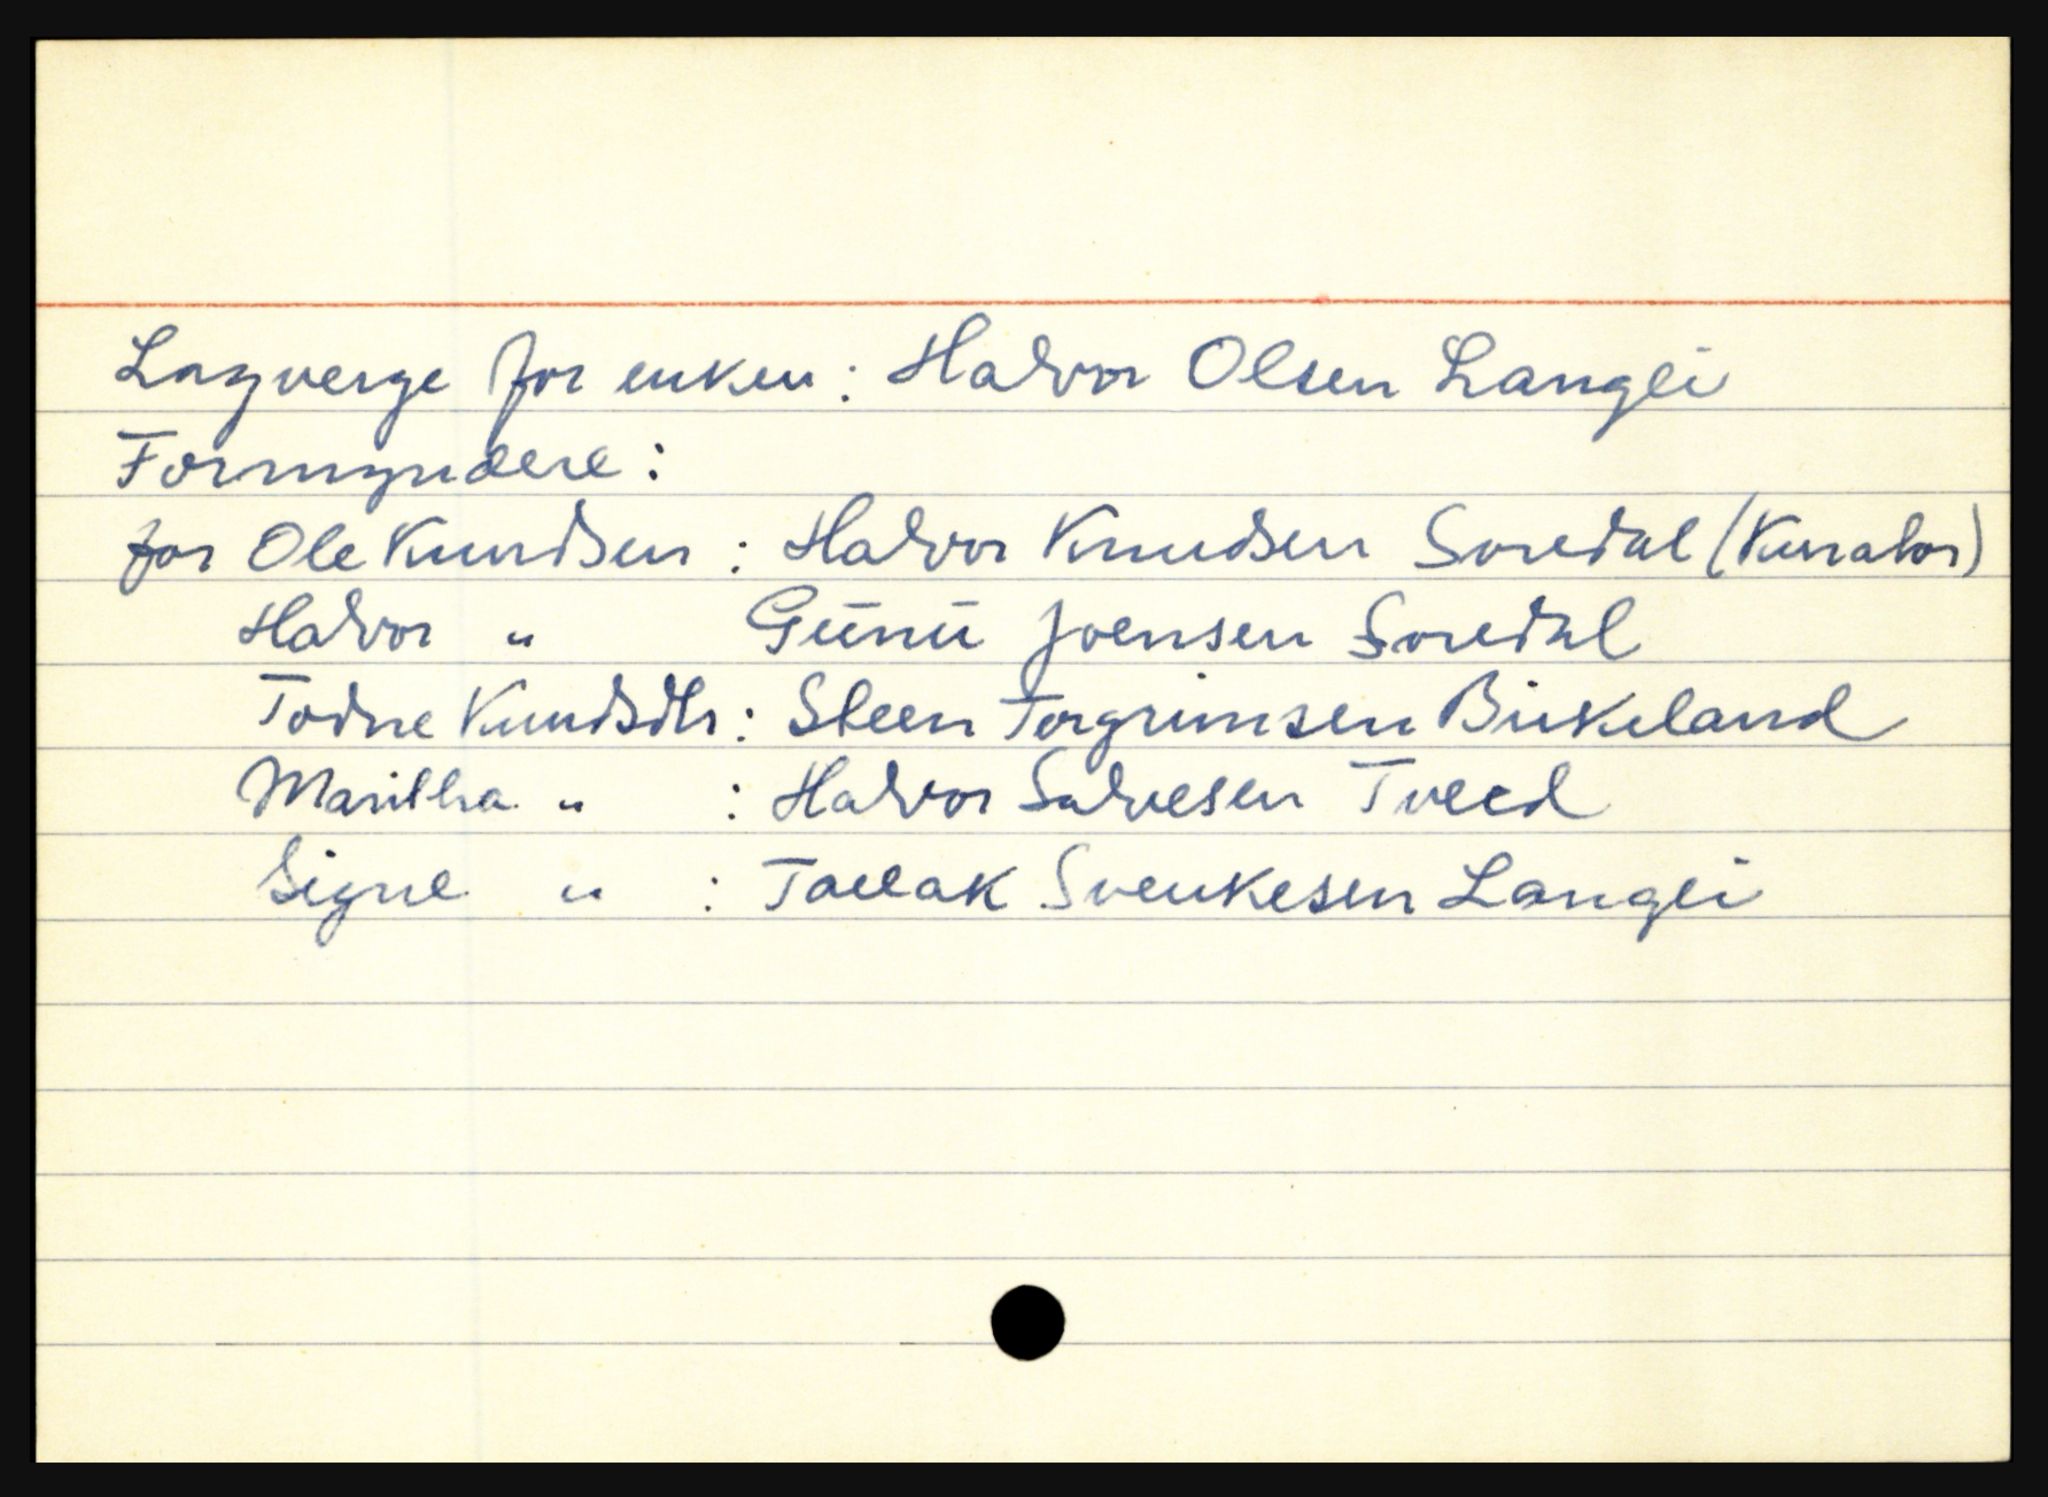 Lagverge for enken: Halvor Olsen Langli
Formyndere:
for Ole Knudsen: Halvor Knudsen Soredal (Kurator)
Halvor " Günü Joensen Soredal
Todne Knudsdtr: Steen Torgrimsen Birkeland
Maritha " : Halvor Salvesen Tveed
Signe " : Tallak Svenkesen Langli